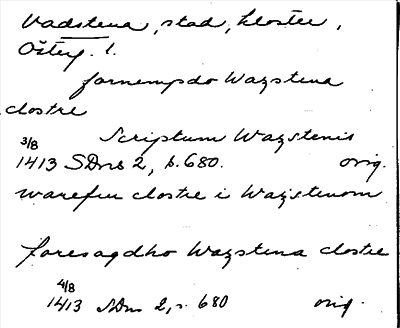 Vadstena, stad, kloster,
Österg. l.
fornempdo Wazstena
clostre
Scriptum Wazstenis
3/8
1413 SDns 2, s. 680. orig.
warefru clostre i Wazstenom
foresagdho Wazstena clostre
4/8
1413 SDns 2, s. 680 orig.